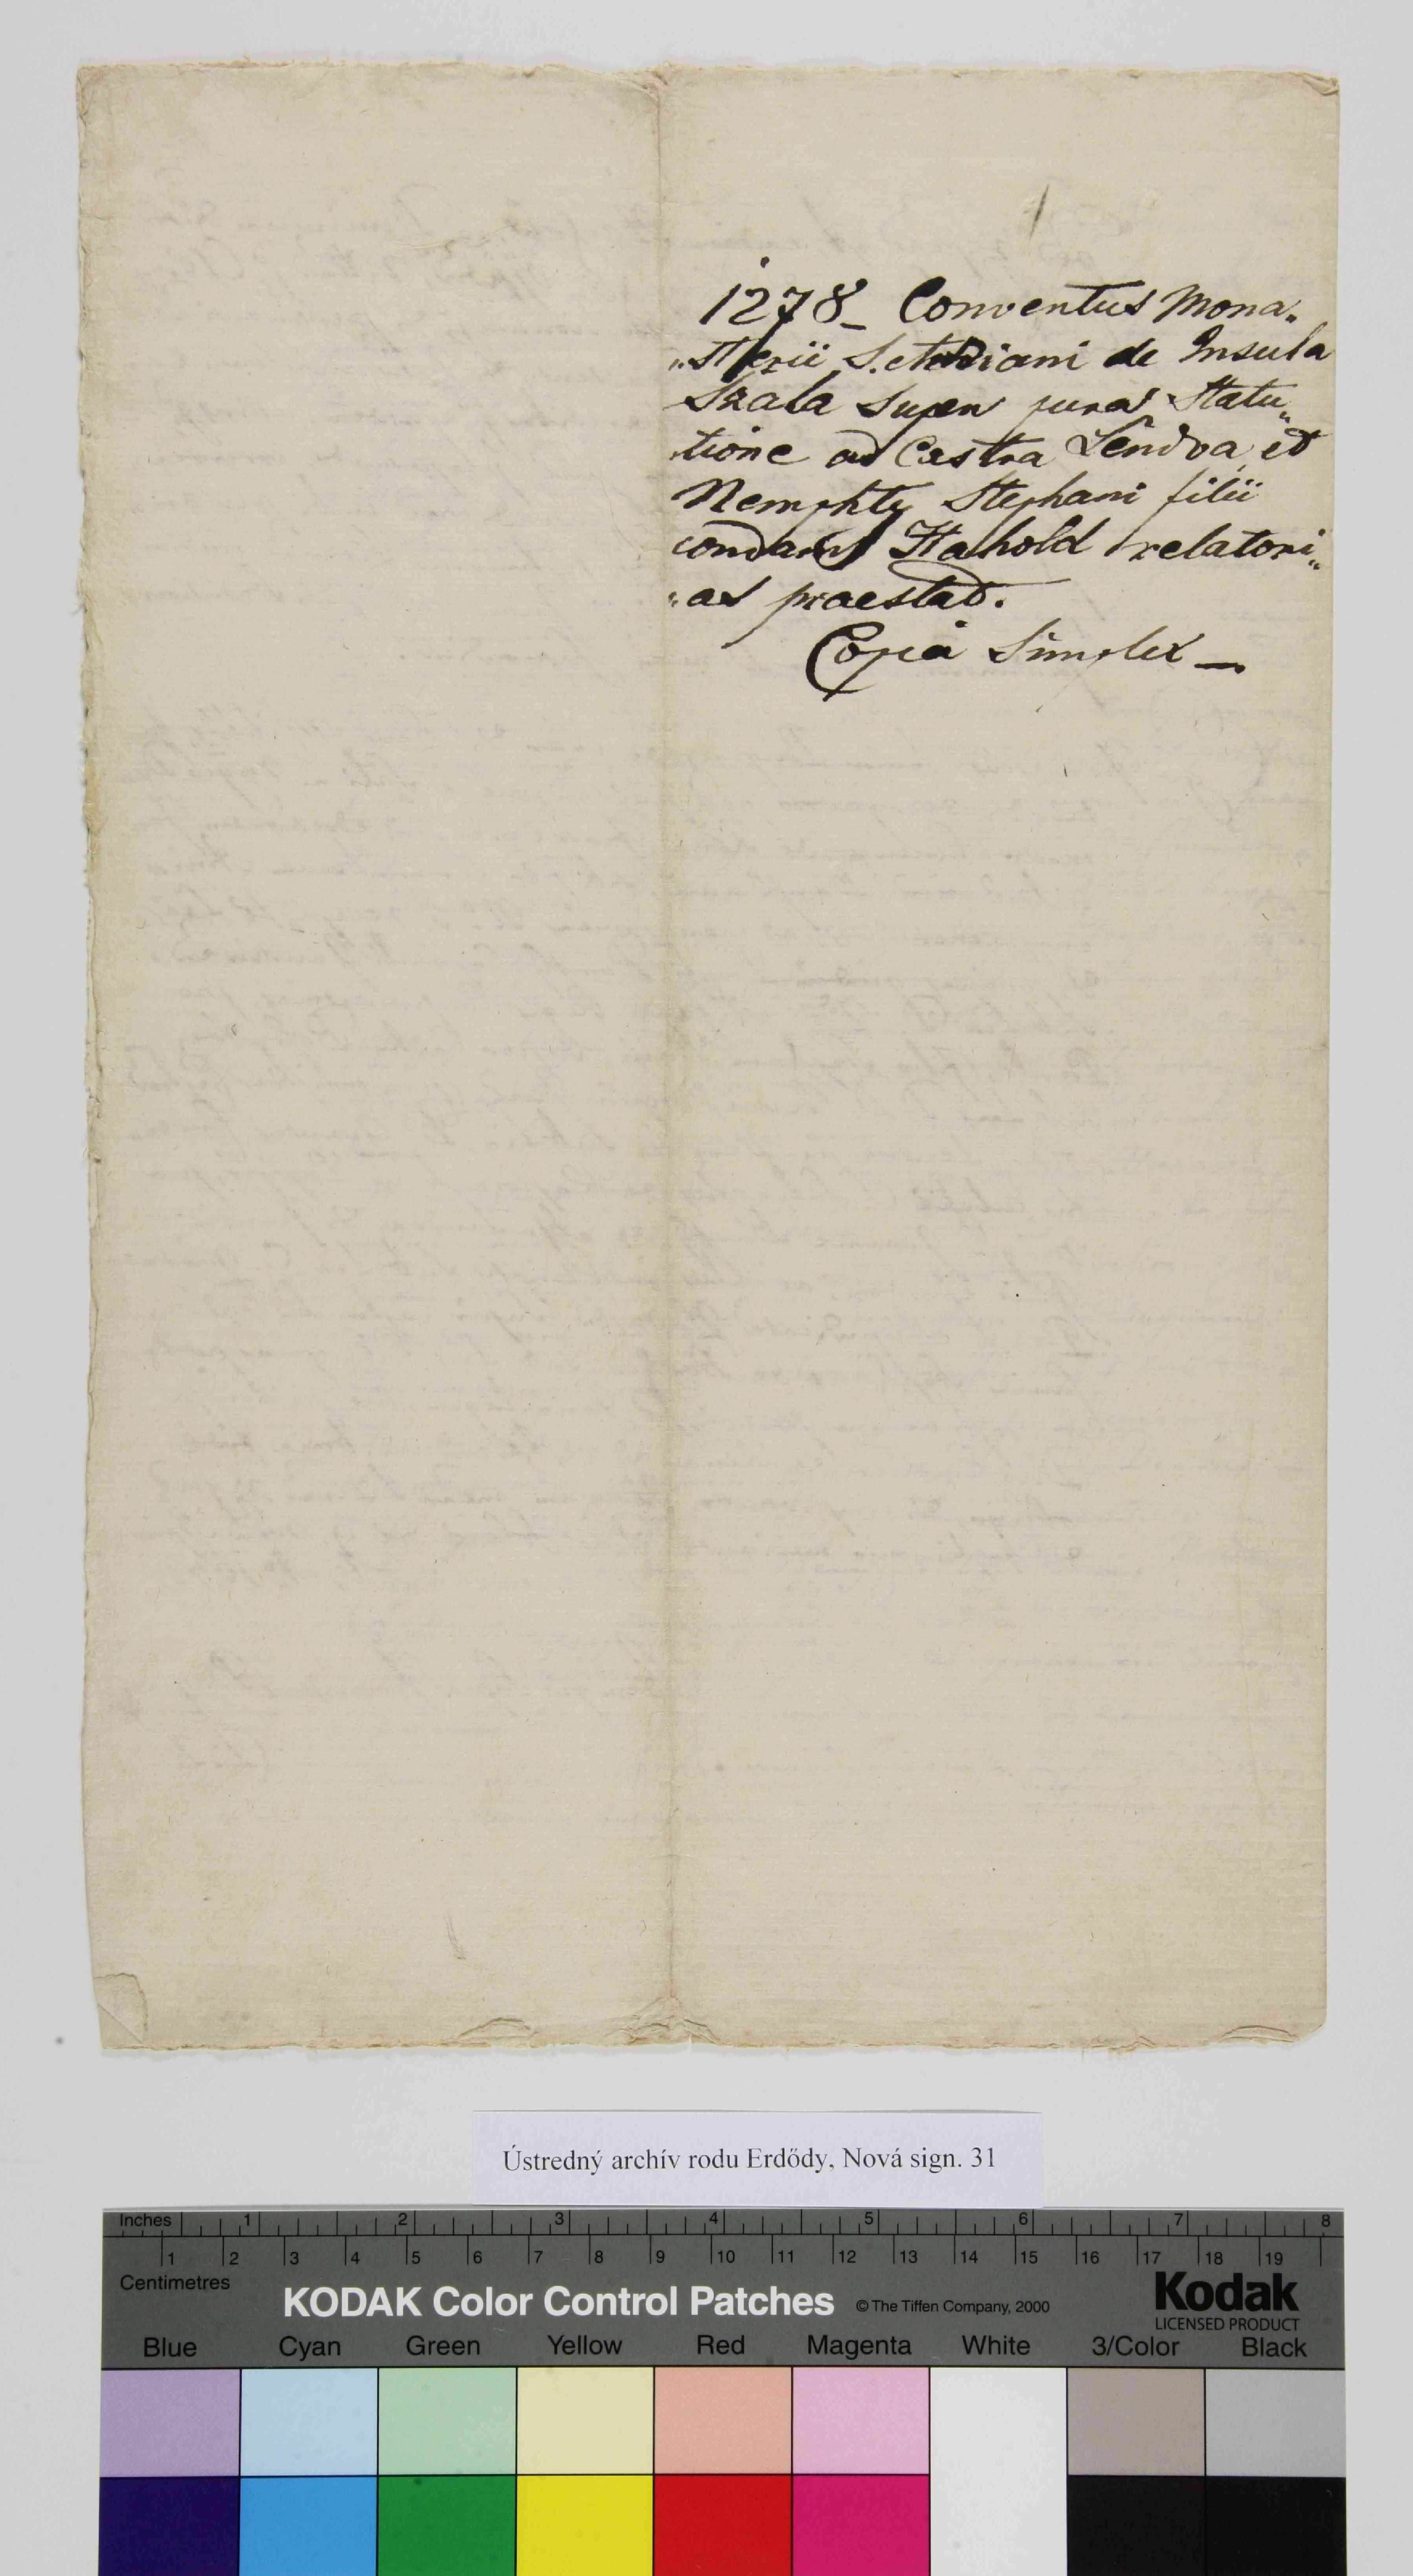 1278_ Conventus Mona„
„sterii S. Adriani de Insula
Szala super jura Statu„
tione ad Castra Lendva et
Nemphty Stephani filii
condam Hahold relatori„
„as praestat.
Copia Simplex —
Ústredný archív rodu Erdődy, Nová sign. 31
Inches 1 2 3 4 5 6 7 8
1 2 3 4 5 6 7 8 9 10 11 12 13 14 15 16 17 18 19
Centimetres
KODAK Color Control Patches © The Tiffen Company, 2000 Kodak
LICENSED PRODUCT
Blue Cyan Green Yellow Red Magenta White 3/Color Black